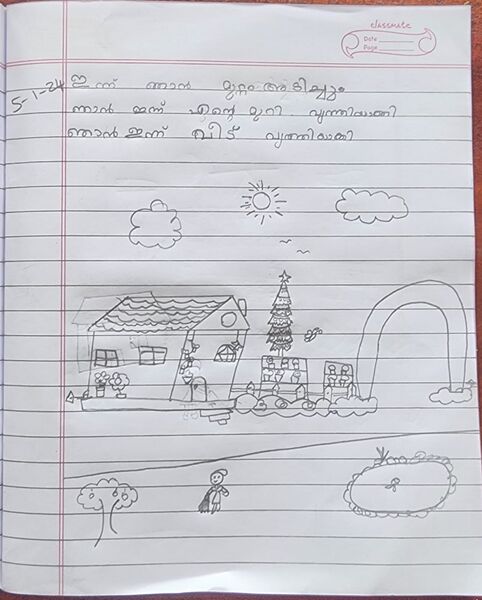 classmate
Date
Page
5-1-24
ഇന്ന് ഞാൻ മുറ്റം അടിച്ചും
ഞാൻ ഇന്ന് എന്റെ മുറി വൃത്തിയാക്കി
ഞാൻ ഇന്ന് വീട് വൃത്തിയാക്കി